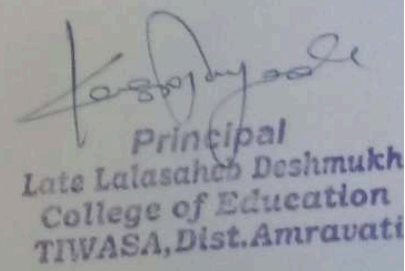 Principal
Late Lalasaheb Deshmukh
College of Education
TIWASA, Dist. Amravati